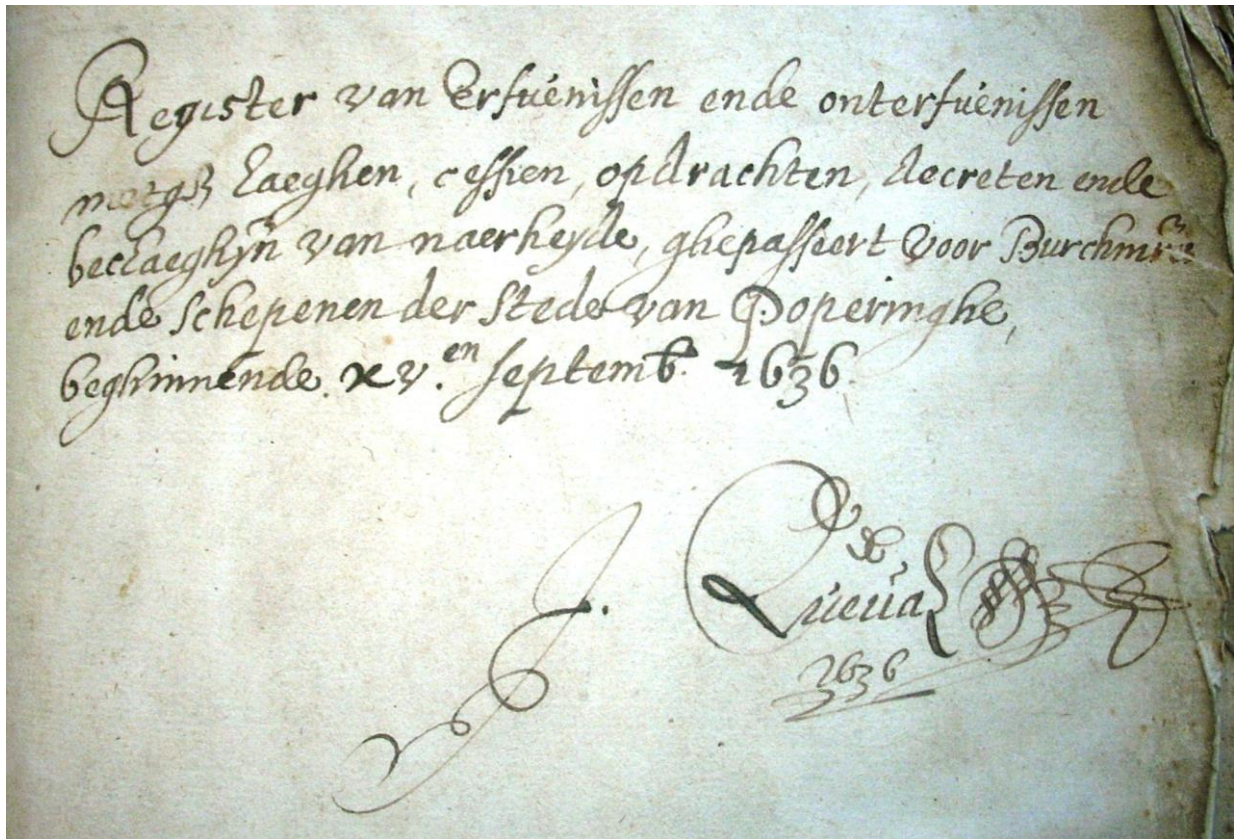 Register van Erfuenissen ende onterfuenissen
metgs Laeghen, cessien, opdrachten, decreten ende
beclaeghijn van naerheyde, ghepasseert voor Burchmrs
ende schepenen der stede van Poperinghe,
beghinnende xv.en septemb. 1636.
J. de Queual
1636